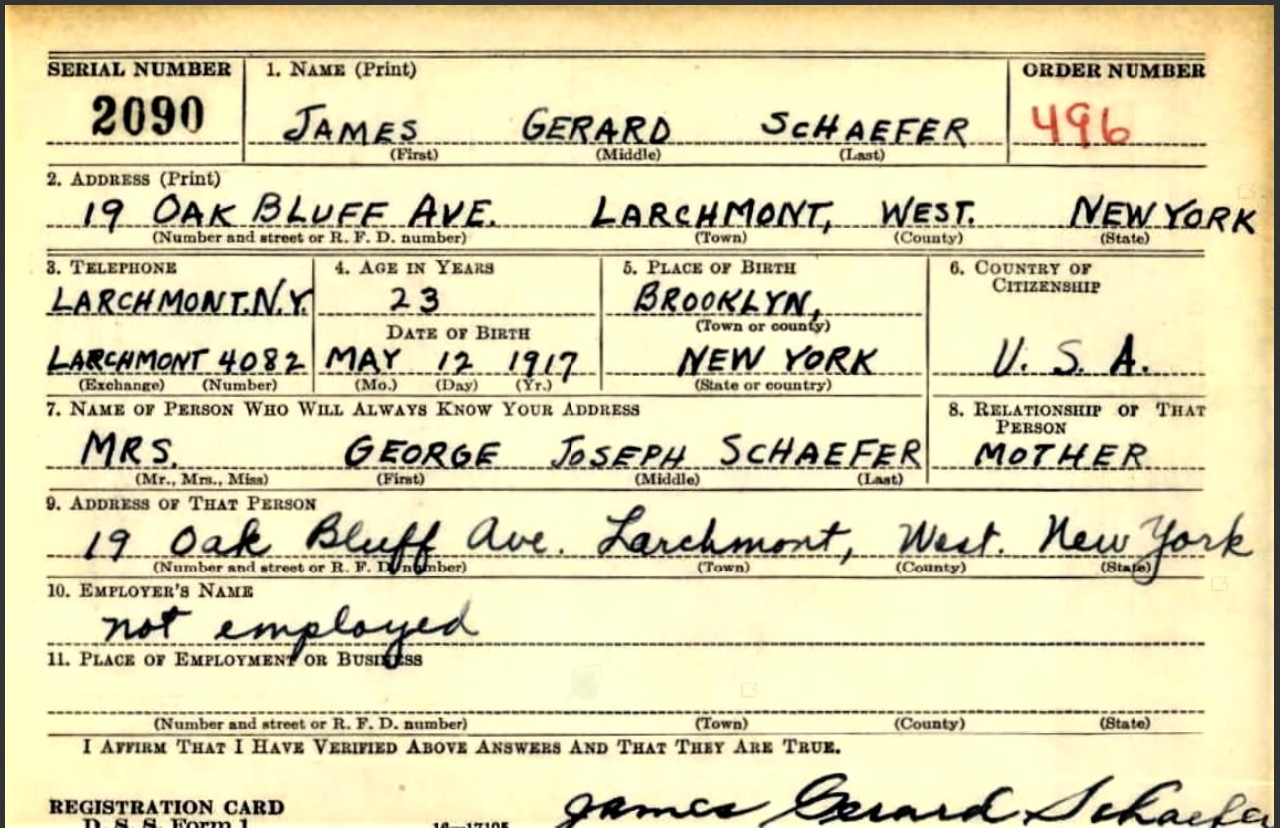 SERIAL NUMBER 1. NAME (Print) ORDER NUMBER
2090 JAMES GERARD SCHAEFER 496
(First) (Middle) (Last)
2. ADDRESS (Print)
19 OAK BLUFF AVE. LARCHMONT, WEST. NEW YORK
(Number and street or R. F. D. number) (Town) (County) (State)
3. TELEPHONE 4. AGE IN YEARS 5. PLACE OF BIRTH 6. COUNTRY OF
CITIZENSHIP
LARCHMONT.N.Y. 23 BROOKLYN,
(Town or county)
DATE OF BIRTH
LARCHMONT 4082 MAY 12 1917 NEW YORK U. S. A.
(Exchange) (Number) (Mo.) (Day) (Yr.) (State or country)
7. NAME OF PERSON WHO WILL ALWAYS KNOW YOUR ADDRESS 8. RELATIONSHIP OF THAT
PERSON
MRS. GEORGE JOSEPH SCHAEFER MOTHER
(Mr., Mrs., Miss) (First) (Middle) (Last)
9. ADDRESS OF THAT PERSON
19 Oak Bluff Ave. Larchmont, West. New York
(Number and street or R. F. D. number) (Town) (County) (State)
10. EMPLOYER'S NAME
not employed
11. PLACE OF EMPLOYMENT OR BUSINESS
(Number and street or R. F. D. number) (Town) (County) (State)
I AFFIRM THAT I HAVE VERIFIED ABOVE ANSWERS AND THAT THEY ARE TRUE.
REGISTRATION CARD James Gerard Schaefer
D. S. S. Form 1 16—17105